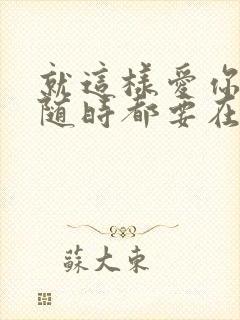 就這樣愛你
随时都要在
蘇大東